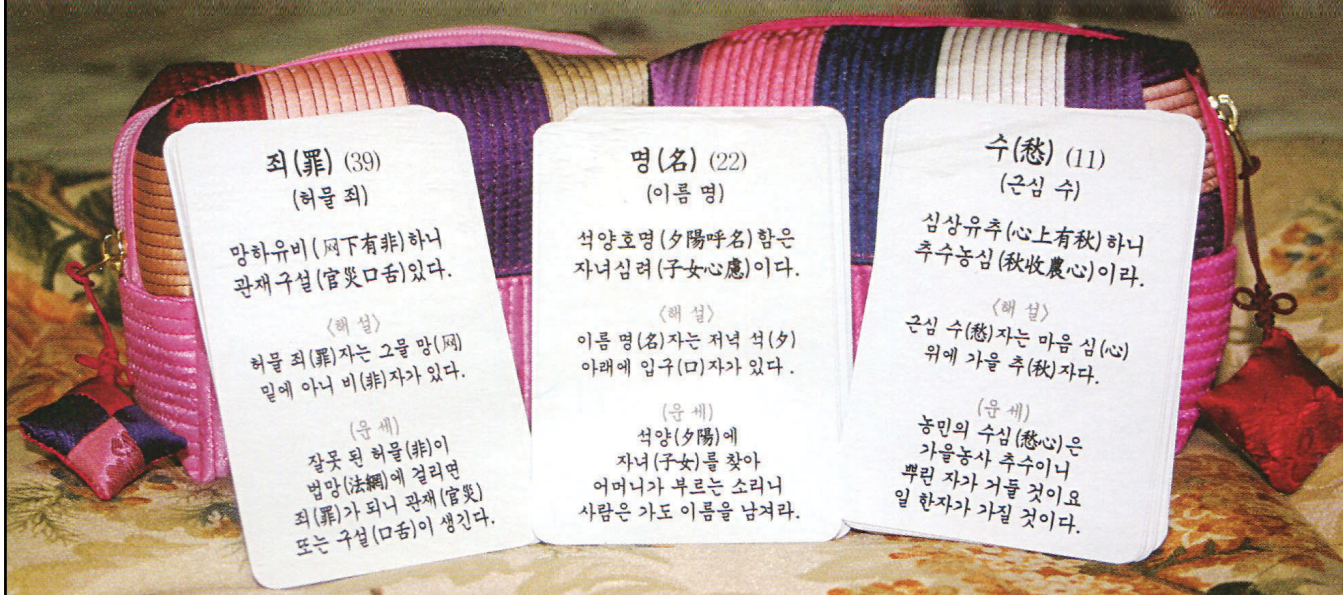 죄(罪) (39)
(허물 죄)
망하유비(网下有非)하니
관재구설(官災口舌)있다.
〈해 설〉
허물 죄(罪)자는 그물 망(网)
밑에 아니 비(非)자가 있다.
(운 세)
잘못 된 허물(非)이
법망(法網)에 걸리면
죄(罪)가 되니 관재(官災)
또는 구설(口舌)이 생긴다.
명(名) (22)
(이름 명)
석양호명(夕陽呼名)함은
자녀심려(子女心慮)이다.
〈해 설〉
이름 명(名)자는 저녁 석(夕)
아래에 입구(口)자가 있다.
(운 세)
석양(夕陽)에
자녀(子女)를 찾아
어머니가 부르는 소리니
사람은 가도 이름을 남겨라.
수(愁) (11)
(근심 수)
심상유추(心上有秋)하니
추수농심(秋收農心)이라.
〈해 설〉
근심 수(愁)자는 마음 심(心)
위에 가을 추(秋)자다.
(운 세)
농민의 수심(愁心)은
가을농사 추수이니
뿌린 자가 거둘 것이요
일 한자가 가질 것이다.